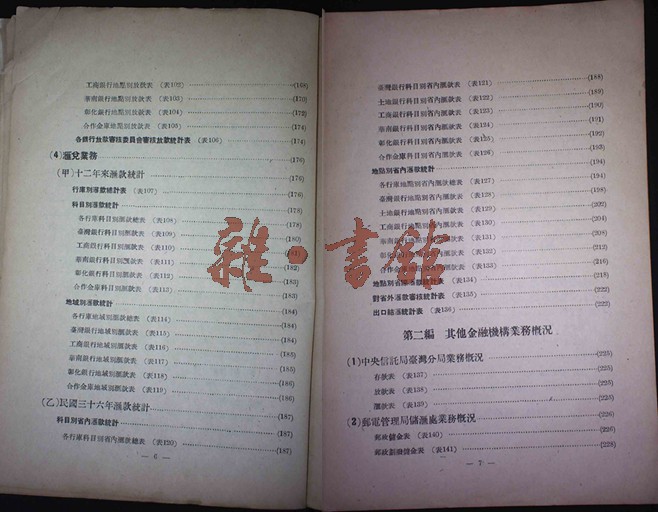 工商銀行地點別放款表 (表102) (168)
華南銀行地點別放款表 (表103) (170)
彰化銀行地點別放款表 (表104) (172)
合作金庫地點別放款表 (表105) (174)
各銀行放款審核委員會審核放款統計表 (表106) (174)
(4)滙兌業務 (176)
(甲)十二年來滙款統計 (176)
行庫別滙款總計表 (表107) (176)
科目別滙款統計 (178)
各行庫科目別滙款總表 (表108) (178)
臺灣銀行科目別滙款表 (表109) (180)
工商銀行科目別滙款表 (表110) (181)
華南銀行科目別滙款表 (表111) (182)
彰化銀行科目別滙款表 (表112) (183)
合作金庫科目別滙款表 (表113) (183)
地域別滙款統計 (184)
各行庫地域別滙款總表 (表114) (184)
臺灣銀行地域別滙款表 (表115) (184)
工商銀行地域別滙款表 (表116) (185)
華南銀行地域別滙款表 (表117) (185)
彰化銀行地域別滙款表 (表118) (186)
合作金庫地域別滙款表 (表119) (186)
(乙)民國三十六年滙款統計 (187)
科目別省內滙款統計 (187)
各行庫科目別省內滙款總表 (表120) (187)
— 6 —
臺灣銀行科目別省內滙款表 (表121) (188)
土地銀行科目別省內滙款表 (表122) (189)
工商銀行科目別省內滙款表 (表123) (190)
華南銀行科目別省內滙款表 (表124) (191)
彰化銀行科目別省內滙款表 (表125) (192)
合作金庫科目別省內滙款表 (表126) (193)
地點別省內滙款統計 (194)
各行庫地點別省內滙款總表 (表127) (194)
臺灣銀行地點別省內滙款表 (表128) (194)
土地銀行地點別省內滙款表 (表129) (202)
工商銀行地點別省內滙款表 (表130) (204)
華南銀行地點別省內滙款表 (表131) (208)
彰化銀行地點別省內滙款表 (表132) (212)
合作金庫地點別省內滙款表 (表133) (216)
地點別省際滙款統計表 (表134) (218)
對省外滙款審核統計表 (表135) (222)
出口結滙統計表 (表136) (223)
第二編 其他金融機構業務概況
(1)中央信託局臺灣分局業務概況 (225)
存款表 (表137) (225)
放款表 (表138) (225)
滙款表 (表139) (225)
(2)郵電管理局儲滙處業務概況 (226)
郵政儲金表 (表140) (226)
郵政劃撥儲金表 (表141) (228)
— 7 —
雜·書館